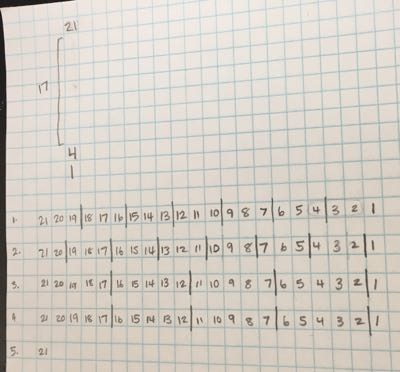 21
17
4
1
1. 21 20 19|18 17|16|15 14 13|12 11 10|9 8 7|6 5 4|3 2|1
2. 21 20|19 18 17|16 15 14|13 12 11|10 9 8|7 6 5|4 3 2|1
3. 21 20 19 18 17|16 15 14 13 12|11 10 9 8 7|6 5 4 3 2|1
4 21 20 19 18 17|16 15 14 13 12|11 10 9 8 7|6 5 4 3 2|1
5. 21